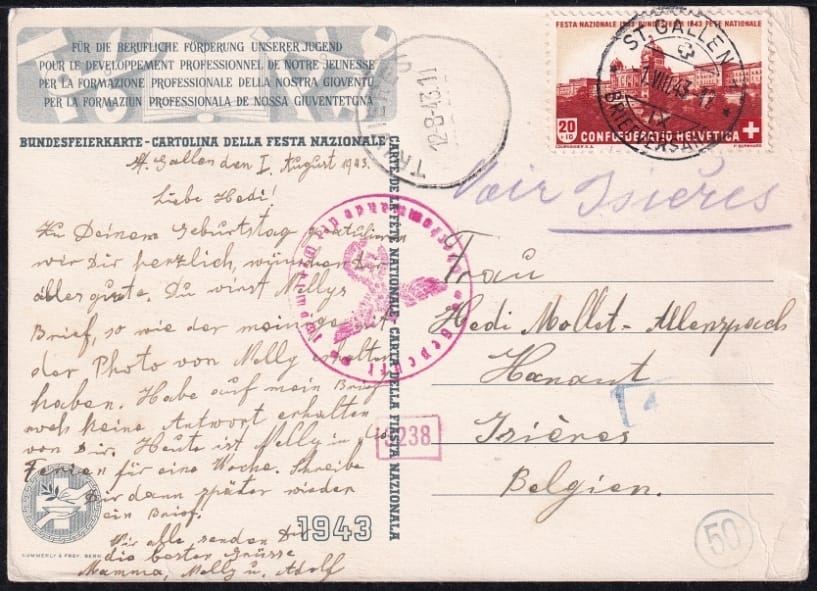 FÜR DIE BERUFLICHE FÖRDERUNG UNSERER JUGEND
POUR LE DEVELOPPEMENT PROFESSIONNEL DE NOTRE JEUNESSE
PER LA FORMAZIONE PROFESSIONALE DELLA NOSTRA GIOVENTÙ
PER LA FORMAZIUN PROFESSIONALA DE NOSSA GIUVENTETGNA
BUNDESFEIERKARTE - CARTOLINA DELLA FESTA NAZIONALE
CARTE DE LA FÊTE NATIONALE - CARTA DELLA FIASTA NAZIONALA
St. Gallen den I. August 1943.
Liebe Hedi!
Zu Deinem Geburtstag gratulieren
wir Dir herzlich, wünschen Dir
alles gute. Du wirst Nellys
Brief, so wie der meinige mit
der Photo von Nelly erhalten
haben. Habe auf mein Brief
noch keine Antwort erhalten
von Dir. Heute ist Nelly in die
Ferien für eine Woche. Schreibe
Dir dann später wieder
ein Brief.
Wir alle senden Dir
die besten Grüsse
Mamma, Nelly u. Adolf
1943
KÜMMERLY & FREY, BERN
TRAMIERES
12-8-43.11
FESTA NAZIONALE 1943 BUNDESFEIER 1943 FÊTE NATIONALE
20
+10
CONFOEDERATIO HELVETICA
COURVOISIER S.A.
ST. GALLEN
1.VIII.43.-12
IX
BRIEFVERSAND
Voir Isières
Frau
Hedi Mollet-Allenspach
Hanaut
Isières
Belgien.
Oberkommando der Wehrmacht
Geprüft
5238
50